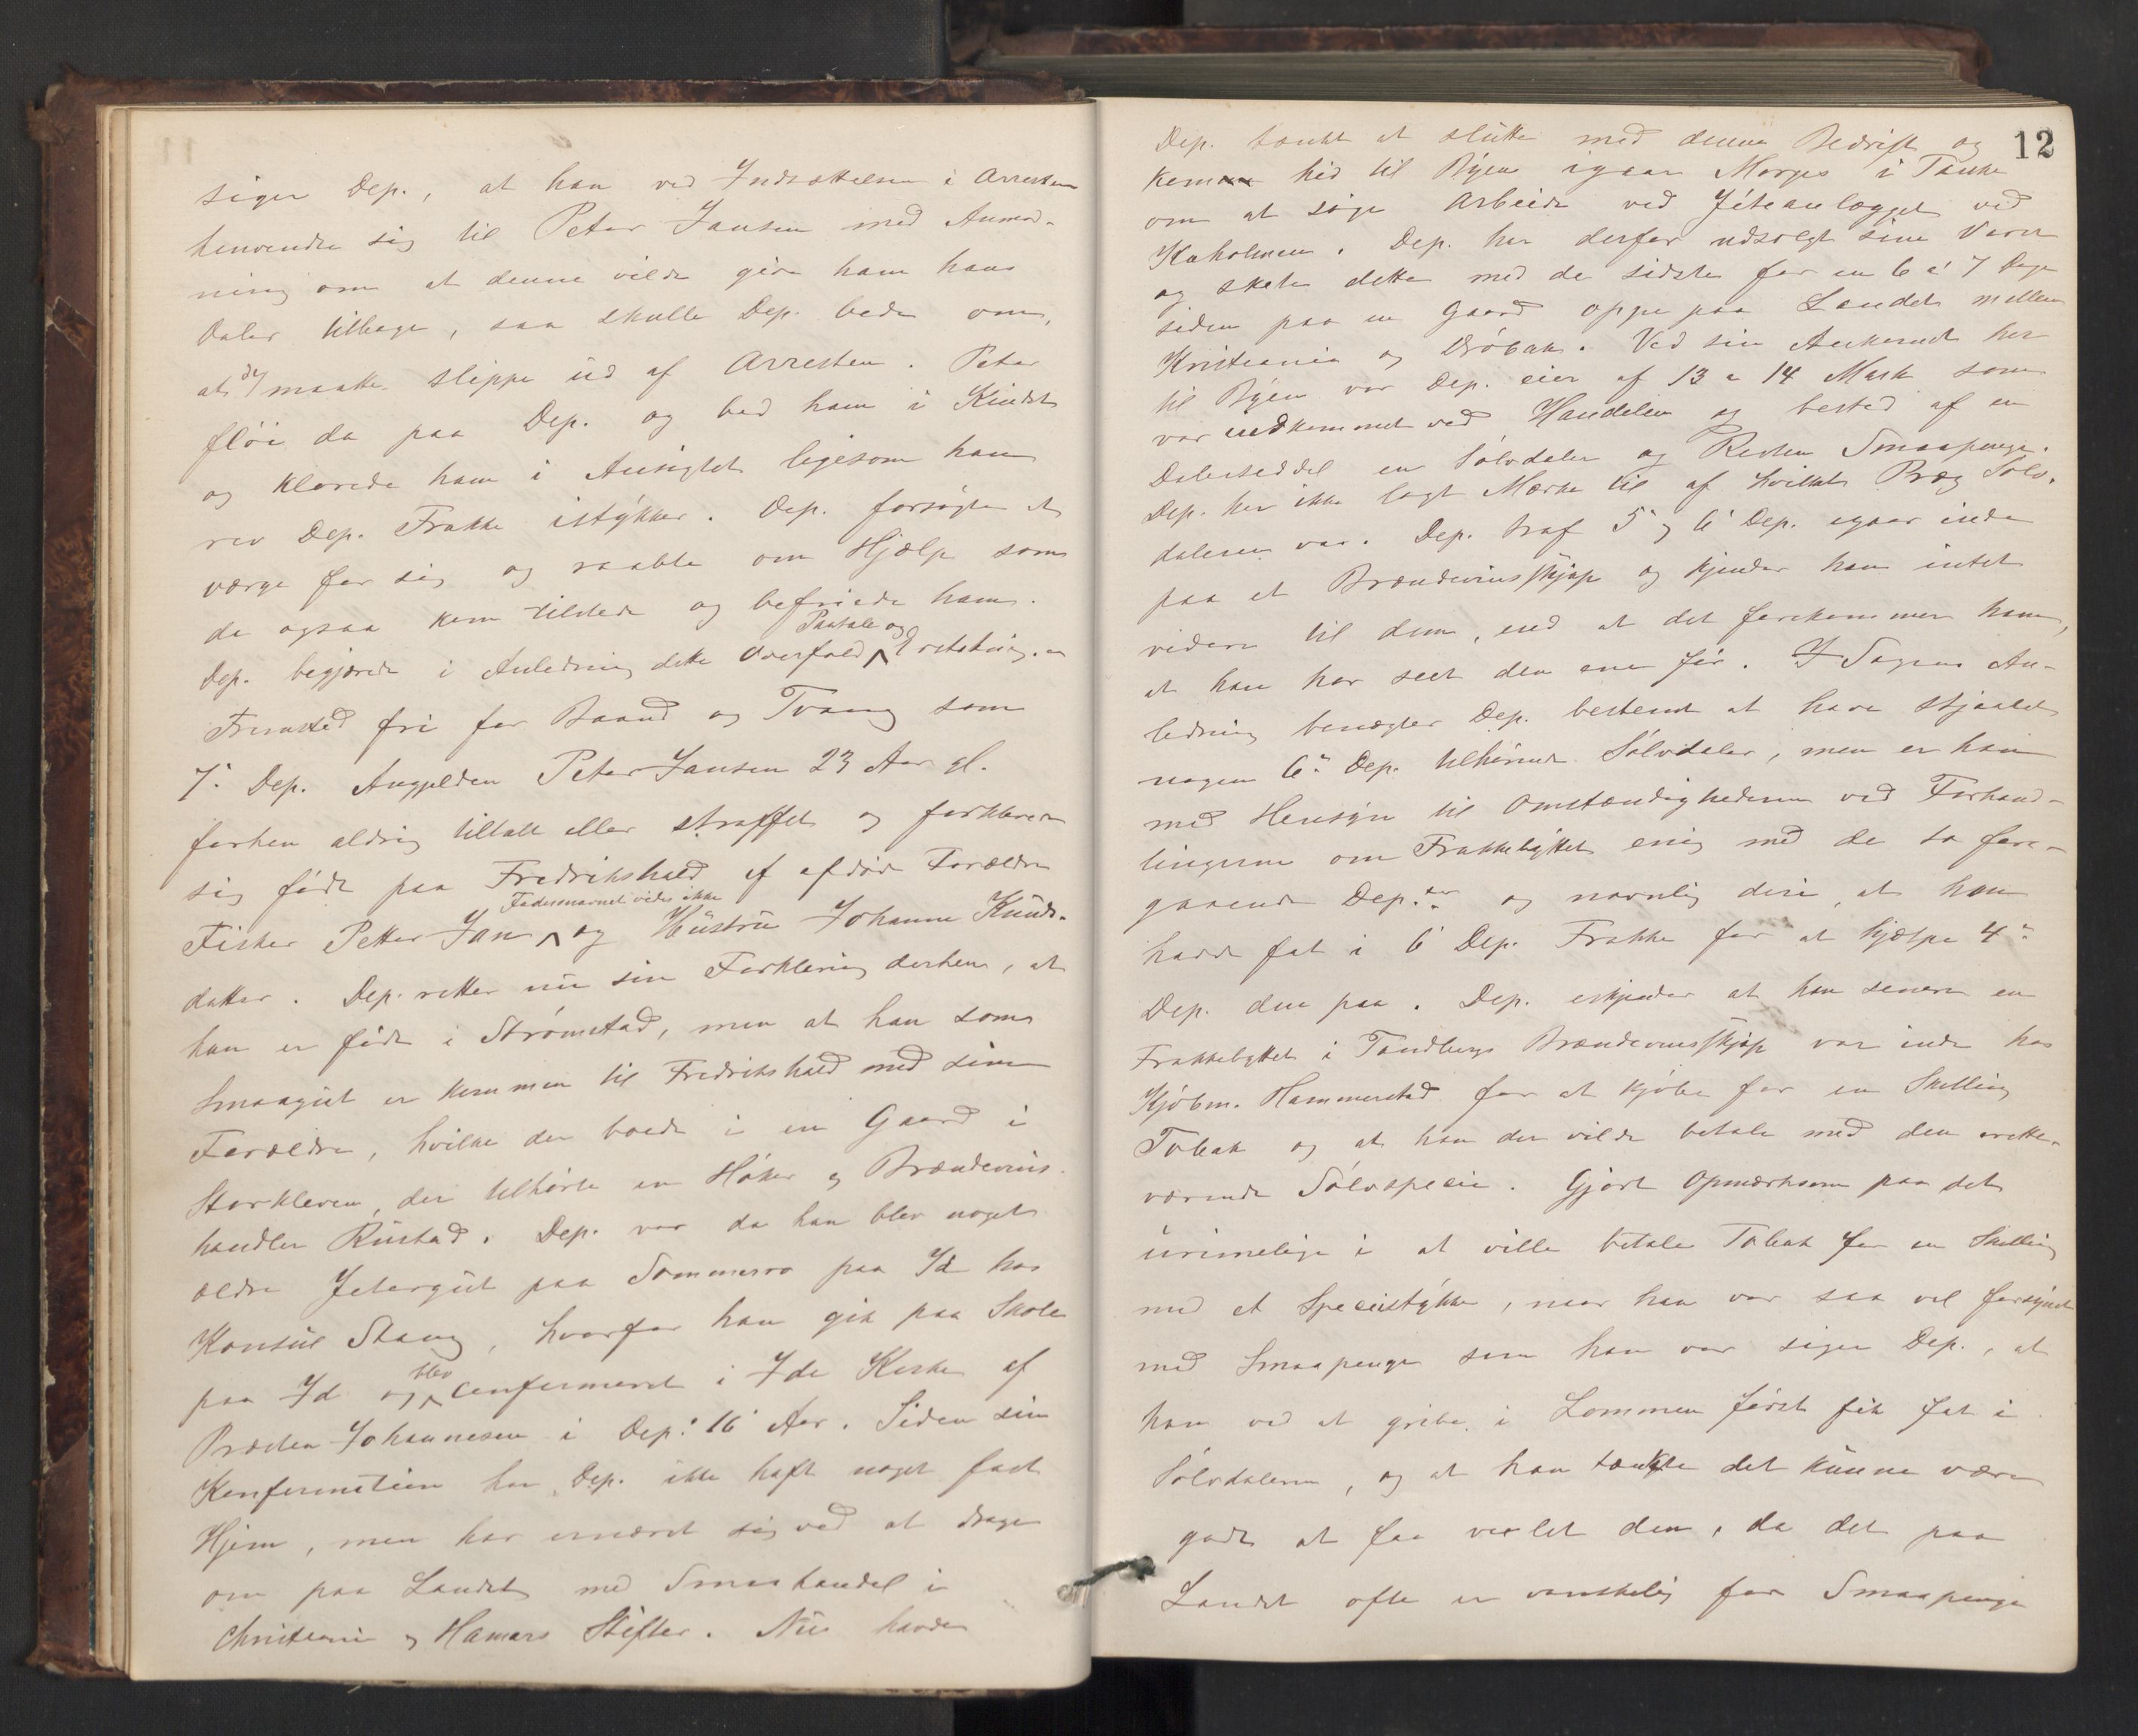 siger Dep., at han ved Indsættelsen i Arresten
henvendte sig til Peter Jansen med Anmod-
ning om at denne vilde give ham hans
Daler tilbage, saa skulle Dep. bede om,
at de maatte slippe ud af Arresten. Peter
fløi da paa Dep. og bed ham i Kindet
og klorede ham i Ansigtet ligesom han
rev Dep. Frakke istykker. Dep. forsøgte at
værge for sig og raabte om Hjælp som
da ogsaa kom tilstede og befriede ham.
Dep. begjærede i Anledning dette Overfald Paatale og Erstatning.
Fremsted fri for Baand og Tvang som
7de Dep. Angjelden Peter Jansen 23 Aar gl.
forhen aldrig tiltalt eller straffet og forklarer
sig født paa Fredrikshald af afdøde Forældre
Fisker Petter Jan Fadersnavnet vides ikke og Hustru Johanne Knuds-
datter. Dep. retter nu sin Forklaring derhen, at
han er født i Strømstad, men at han som
Smaagut er kommen til Fredrikshald med sine
Forældre, hvilke der boede i en Gaard i
Storkleven, der tilhørte en Høker og Brændevins-
handler Rustad. Dep. var da han blev noget
ældre Jetergut paa Sommerro paa Id hos
Konsul Stang, hvorfor han gik paa Skole
paa Id og blev confirmeret i Ide Kirke af
Præsten Johannesen i Dep. 16 Aar. Siden sin
Konfirmation har Dep. ikke haft noget fast
Hjem, men har ernæret sig ved at drage
om paa Landet med Smaahandel i
Christiania og Hamars Stifter. Nu havde
12
Dep. tænkt at slutte med denne Bedrift og
kom hid til Byen igaar Morges i Tanke
om at søge Arbeide ved Jéteanlægget ved
Kaholmen. Dep. har derfor udsolgt sine Varer
og skete dette med de sidste for en 6 a 7 Dage
siden paa en Gaard oppe paa Landet mellem
Kristiania og Drøbak. Ved sin Ankomst her
til Byen var Dep. eier af 13 a 14 Mark som
var indkommet ved Handelen og bestod af en
Dalerseddel en Sølvdaler og Resten Smaapenge.
Dep. har ikke lagt Mærke til af hvilket Præg Sølv-
daleren var. Dep. traf 5te og 6te Dep. igaar inde
paa et Brændevinsskjap og kjender han intet
videre til dem, end at det forekommer ham,
at han har seet den ene før. I Sagens An-
ledning benægter Dep. bestemt at have stjaalet
nogen 6te Dep. tilhørende Sølvdaler, men er han
med Hensyn til Omstændighederne ved Forhand-
lingerne om Frakkebyttet enig med de to fore-
gaaende Dep.er og navnlig deri, at han
havde fat i 6te Dep. Frakke for at hjælpe 4de
Dep. den paa. Dep. erkjender at han senere en
Frakkebyttet i Tandbergs Brændevinsskjap var inde hos
Kjøbm. Hammerstad for at kjøbe for en Skilling
Tobak og at han der vilde betale med den rette-
værende Sølvspecie. Gjort opmærksom paa det
urimelige i at ville betale Tobak for en Skilling
med et Speciestykke, naar han var saa vel forsynet
med Smaapenge som han var siger Dep., at
han ved at gribe i Lommen først fik fat i
Sølvdaleren, og at han tænkte det kunne være
godt at faa vexlet den, da det paa
Landet ofte er vanskelig for Smaapenge